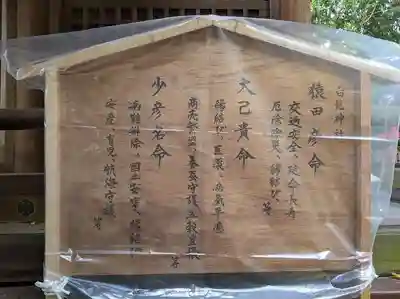 白龍神社
猿田彦命
交通安全、延命長寿
厄除方災、縁結び、等
大己貴命
縁結び、医薬、病気平癒
商売繁盛、養蚕守護、五穀豊穣
等
少彦名命
病難排除、国土安寧、縁結び
安産、育児、航海守護、等